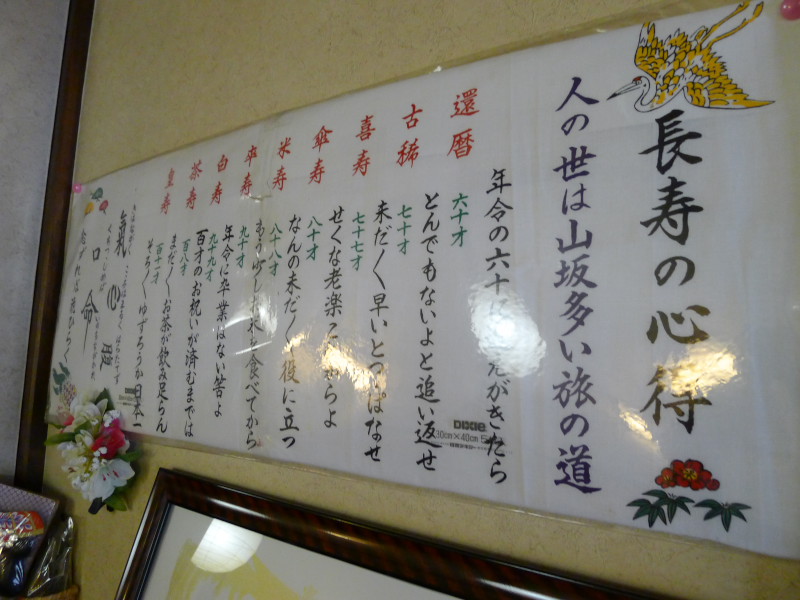 長寿の心得
人の世は山坂多い旅の道
年令の六十に たがきたら
還暦
六十才
とんでもないよと追い返せ
古稀
七十才
未だ〱早いとつっぱなせ
喜寿
七十七才
せくな老楽これからよ
傘寿
八十才
なんの未だ〱役に立つ
米寿
八十八才
もう少しお米を食べてから
卒寿
九十才
年令に卒業はない筈よ
白寿
九十九才
百才のお祝いが済むまでは
茶寿
百八才
まだ〱お茶が飲み足らん
皇寿
百十一才
そろ〱ゆずろうか日本一
氣 心
口 命
DIXIE
30cm×40cm